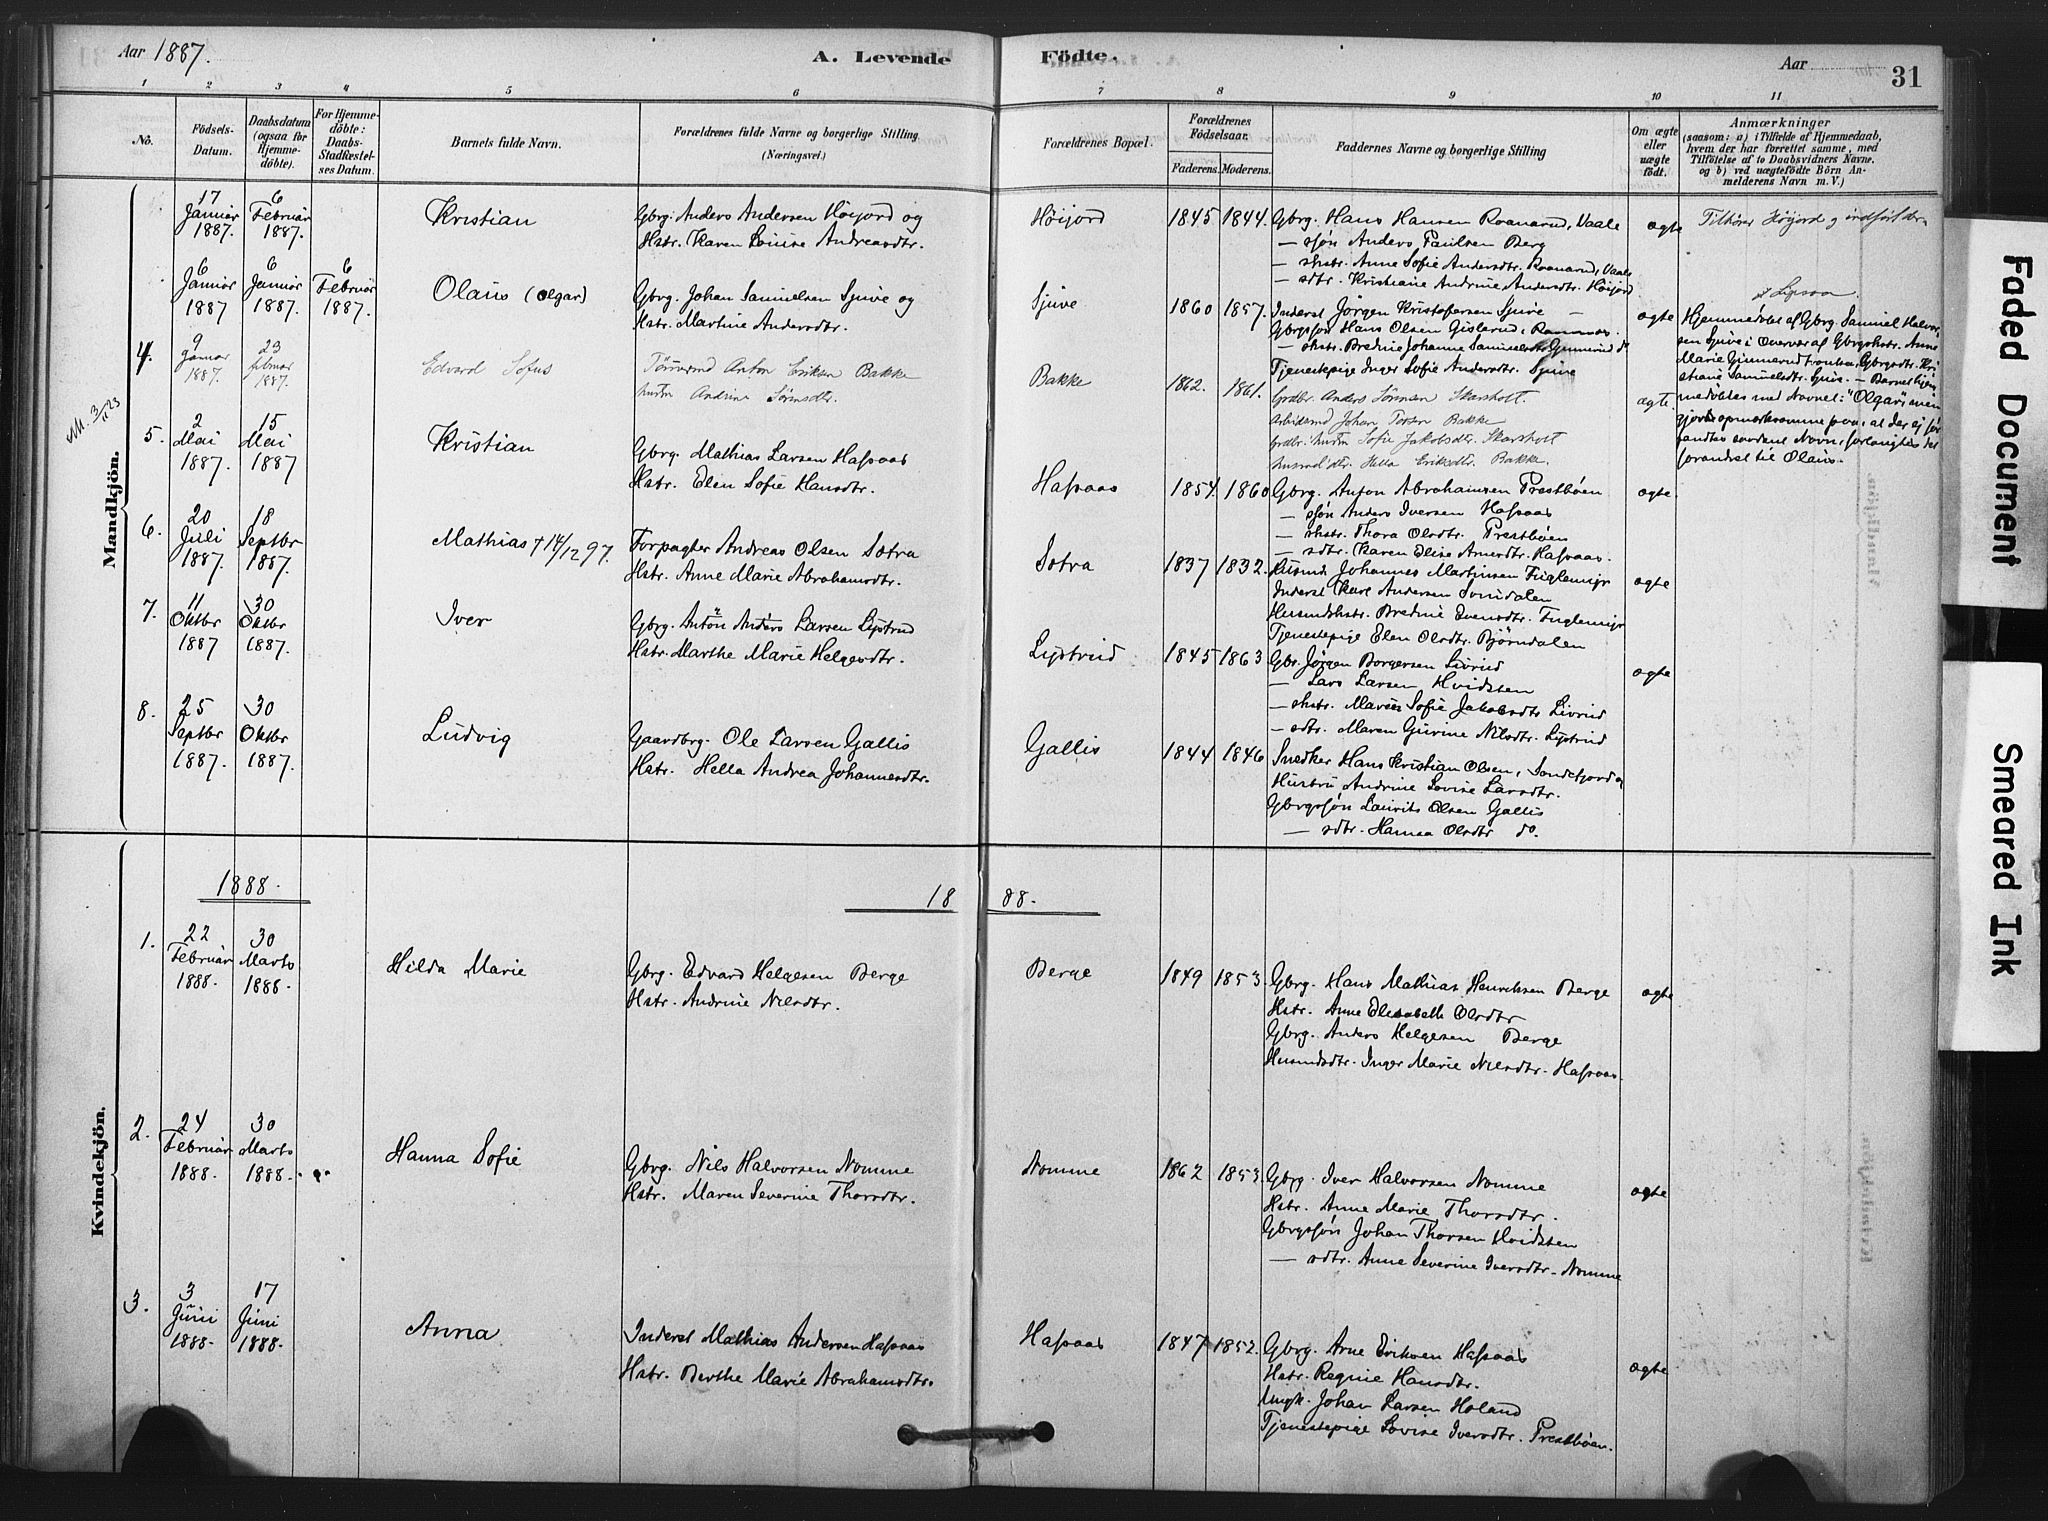 Aar 1887.
A. Levende Födte.
Aar
31
1 2 3 4 5 6 7 8 9 10 11
No.
Födsels-Datum.
Daabsdatum (ogsaa for Hjemmedöbte).
For Hjemmedöbte: Daabs-Stadfæstelses Datum.
Barnets fulde Navn.
Forældrenes fulde Navne og borgerlige Stilling.
(Næringsvei.)
Forældrenes Bopæl.
Forældrenes Födselsaar.
Faderens. Moderens.
Faddernes Navne og borgerlige Stilling
Om ægte eller uægte födt.
Anmærkninger
(saasom: a) i Tilfælde af Hjemmedaab, hvem der har forrettet samme, med Tilföielse af to Daabsvidners Navne, og b) ved uægtefödte Börn Anmelderens Navn m. V.)
Mandkjön.
17 Januar 1887.
6 Februar 1887.
Kristian
Gbrg. Anders Andersen Höijord og
Hstr. Karen Louise Andreasdtr.
Höijord
1845 1844.
Gbrg. Hans Hansen Roanarud, Vaale
— sön Anders Paulsen Berg
— shstr. Anne Sofie Andersdtr. Roanarud, Vaale
— sdtr. Kristiane Andrine Andersdtr. Höijord
ægte
Tilhörer Höijord og indfört der
6 Januar 1887
6 Januar 1887.
6 Februar 1887.
Olaus (Olgar)
Gbrg. Johan Samuelsen Sjuve og
Hstr. Martine Andersdtr.
Sjuve
1860 1857.
Inderst Jörgen Kristofersen Sjuve
Gbrgsön Hans Olsen Gislerud, Ramnæs.
— shstr. Bredine Johanne Samuelsdtr. Gunnerud do
Tjenestepige Inger Sofie Andersdtr. Sjuve
ægte
Hjemmedöbt af Gbrg. Samuel Halvorsen Sjuve i Overvær af Gbrgshstr. Anne
Marie Gunnerud
Barnet hjemmedöbtes med Navnet: "Olgar" men
gjordes opmærksomme paa, at der ej forfandtes saadant Navn, forlangtes det
forandret til Olaus.
4. 9 Januar 1887.
23 februar 1887.
Edvard Sofus
Tömmermd Anton Eriksen Bakke
hustru Andrine Sörensdtr.
Bakke
1862. 1861.
Grdbr. Anders Sörensen Skarsholt.
arbeidsmd Johan Torsen Bakke
Grdbr. hustru Sofie Jakobsdtr. Skarsholt
husmdsdtr. Hella Eriksdtr. Bakke.
ægte.
5. 2 Mai 1887.
15 Mai 1887
Kristian
Gbrg. Mathias Larsen Hafsaas
Hstr. Elen Sofie Hansdtr.
Hafsaas
1854 1860
Gbrg. Anton Abrahamsen Prestbøen
— sön Anders Iversen Hafsaas
— shstr. Thora Olsdtr. Prestbøen
— sdtr. Karen Elise Arnesdtr. Hafsaas.
ægte
6. 20 Juli 1887.
18 Septbr 1887.
Mathias † 14/12 97.
Forpagter Andreas Olsen Sotra
Hstr. Anne Marie Abrahamsdtr.
Sotra
1837 1832.
Husmd. Johannes Martinsen Fuglemyr
Inderst Karl Andersen Svindalen
Husmdshstr. Bredine Evensdtr. Fuglemyr
Tjenestepige Elen Olsdtr. Björndalen
ægte
7. 11 Oktbr 1887
30 Oktbr 1887.
Iver
Gbrg. Anton Anders Larsen Lystrud
Hstr. Marthe Marie Helgesdtr.
Lystrud
1845 1863
Gbr. Jörgen Borgersen Livrud
— Lars Larsen Hvidsten
— shstr. Maren Sofie Jakobsdtr Livrud
— sdtr. Maren Gurine Nilsdtr. Lystrud
ægte
8. 25 Septbr 1887.
30 Oktbr 1887.
Ludvig
Gaardbrg. Ole Larsen Gallis
Hstr. Hella Andrea Johannesdtr.
Gallis
1844 1846
Snedker Hans Kristian Olsen, Sandefjord og
Hustru Andrine Lovise Larsdtr.
Gbrgssön Laurits Olsen Gallis
— sdtr. Hanna Olsdtr do.
Kvindekjön.
1888.
1888.
1. 22 Februar 1888.
30 Marts 1888.
Hilda Marie
Gbrg. Edvard Helgesen Berge
Hstr. Andrine Nilsdtr.
Berge
1849 1853.
Gbrg. Hans Mathias Henriksen Berge
Hstr. Anne Elisabeth Olsdtr
Gbrg. Anders Helgesen Berge
Husmdsdtr. Inger Marie Nilsdtr. Hafsaas.
ægte
2. 24 Februar 1888.
30 Marts 1888.
Hanna Sofie
Gbrg. Nils Halvorsen Nomme
Hstr. Maren Severine Thorsdtr.
Nomme
1862 1853.
Gbrg. Iver Halvorsen Nomme
Hstr. Anne Marie Thorsdtr.
Gbrgssön Johan Thorsen Hvidsten
— sdtr. Anne Severine Iversdtr. Nomme
ægte
3. 3 Juni 1888.
17 Juni 1888.
Anna
Inderst Mathias Andersen Hafsaas
Hstr. Berthe Marie Abrahamsdtr.
Hafsaas
1847 1852.
Gbrg. Arne Eriksen Hafsaas
Hstr. Regine Hansdtr.
Ungk. Johan Larsen Holand
Tjenestepige Lovise Iversdtr. Prestbøen.
ægte
Faded Document
Smeared Ink